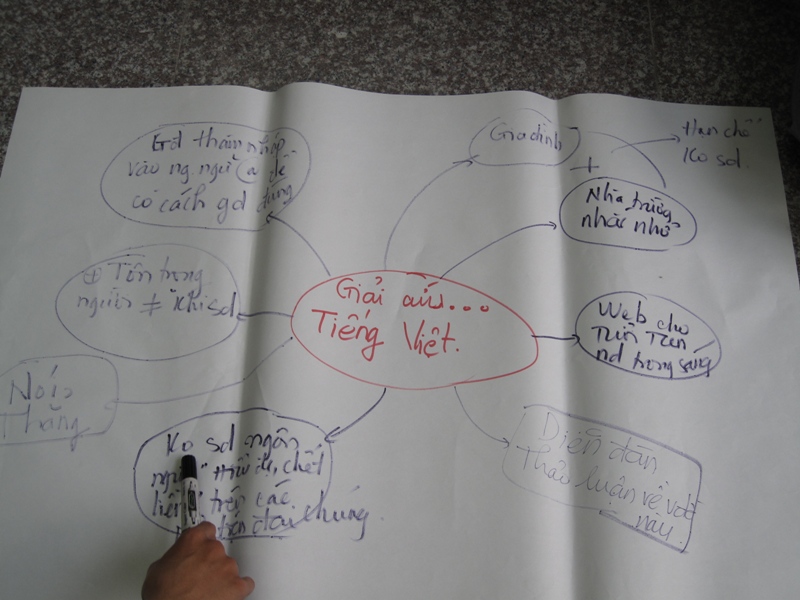 Giải cứu...
Tiếng Việt.
Gia đình
+
Hạn chế
Ko sd.
Nhà trường
nhắc nhở
Web cho
Tuổi Teen
nd trong sáng
Diễn đàn
Thảo luận về vđ
này.
Ko sd ngôn
ngữ
trên các
chúng.
Nói
Thẳng
+ Tôn trọng
người ≠ khi sd
Gđ thâm nhập
vào ng.ngữ @ để
có cách gd đúng